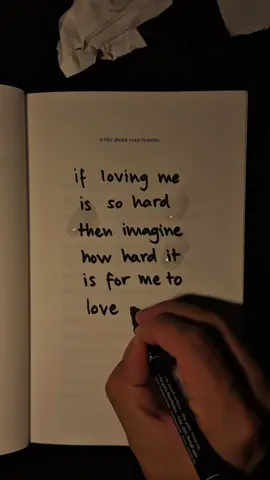 write about your trauma
if loving me
is so hard
then imagine
how hard it
is for me to
love